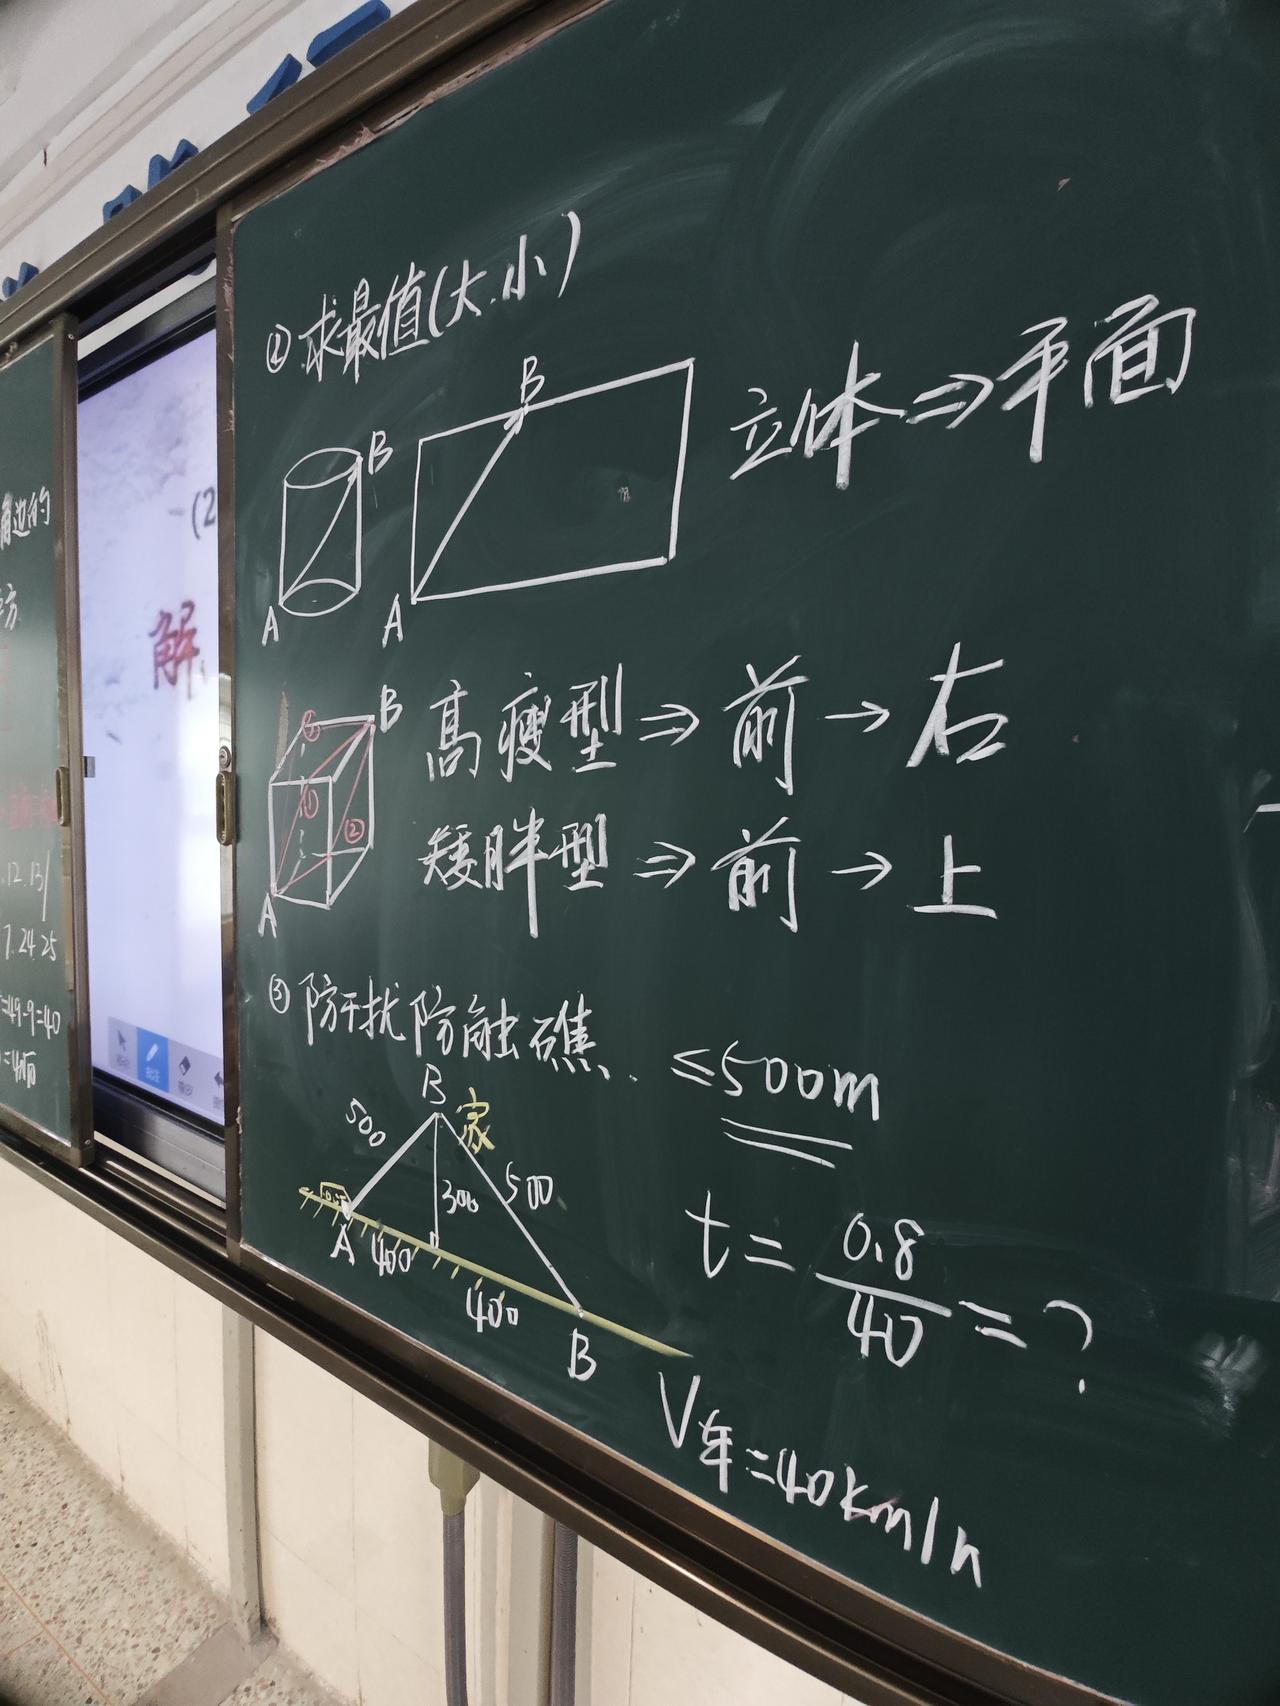 角边的
方
12.13
7.24.25
=49-9=40
(2
解
② 求最值(大.小)
B
B
A
A
立体⇒平面
B
③
①
②
A
高瘦型⇒前→右
矮胖型⇒前→上
③ 防干扰防触礁.
≤500m
B
家
500
300
500
A
400
400
B
t=0.8/40=?
V车=40km/h